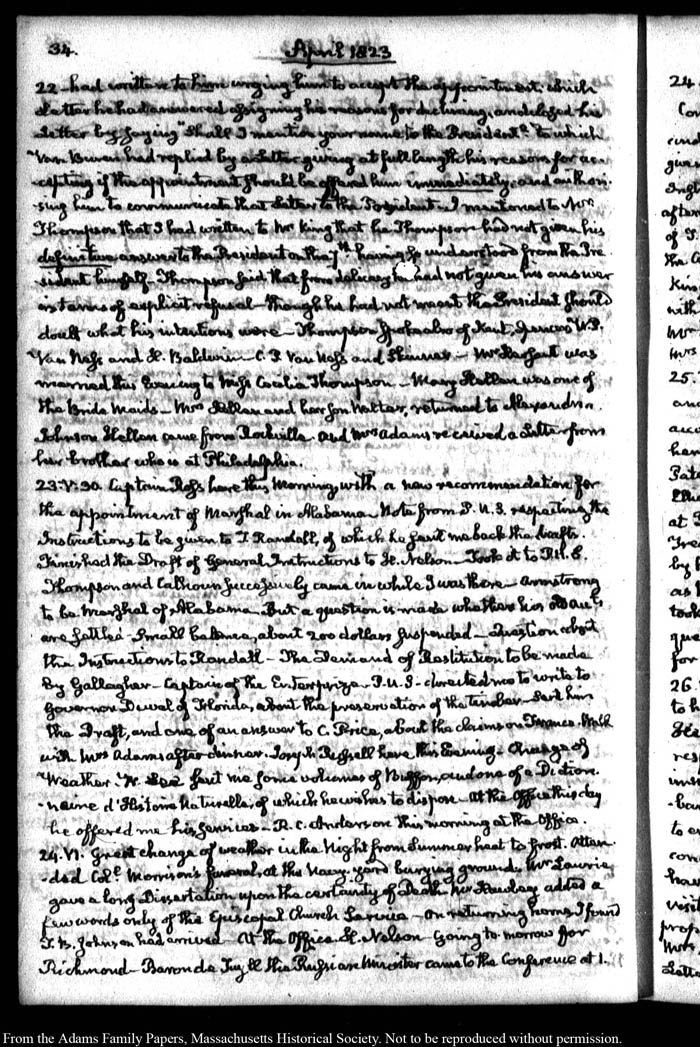 34.
April 1823
22 had written to him urging him to accept the appointment, which
Letter he had answered assigning his reasons for declining, and closed his
Letter by saying "Shall I mention your name to the President" to which
Van Buren had replied by a Letter giving at full length his reasons for ac-
-cepting if the appointment should be offered him immediately, and authori-
sing him to communicate that Letter to the President. I mentioned to Mr
Thompson that I had written to Mr King that he Thompson had not given his
definitive answer to the President on the 7th having so understood from the Pre-
sident himself. Thompson said that from delicacy he had not given his answer
in terms of explicit refusal—though he had not meant the President should
doubt what his intentions were—Thompson spoke also of Kent, Spencer W. P.
Van Ness and H. Baldwin—C. P. Van Ness and Skinner—Mr Sergeant was
married this Evening to Miss Cecilia Thompson—Mary Hellen was one of
the Bride Maids—Mrs Hellen and her son Walter, returned to Alexandria.
Johnson Hellen came from Rockville and Mrs Adams received a Letter from
her brother who is at Philadelphia.
23. V:30. Captain Ross here this Morning with a new recommendation for
the appointment of Marshal in Alabama. Note from P. U. S. respecting the
Instructions to be given to T. Randall, of which he sent me back the drafts.
Finished the Draft of General Instructions to H. Nelson—Took it to P. U. S.
Thompson and Calhoun successively came in while I was there—Armstrong
to be Marshal of Alabama. But a question is made whether his old acc.ts
are settled—Small balance, about 200 dollars suspended—Question about
the Instructions to Randall—The Demand of Restitution to be made
by Gallagher—Captain of the Enterprize. P. U. S. directed me to write to
Governor Duval of Florida, about the preservation of the timber—Sent him
the Draft, and one of an answer to C. Price, about the claims on France. Walk
with Mrs Adams after dinner. Joseph here this Evening. Change of
Weather. W. Lee sent me some volumes of Buffon, and one of a Diction-
-naire d'Histoire Naturelle, of which he wishes to dispose—At the Office this day
he offered me his services—R. C. Anderson this morning at the Office.
24. VI. Great change of weather in the Night from Summer heat to frost. Atten-
-ded Col.l Morrison's funeral, at the Navy-yard burying ground. Mr Laurie
gave a long Dissertation upon the certainty of Death. Mr Hawley added a
few words only of the Episcopal Church Service—On returning home, I found
T. B. Johnson had arrived—At the Office H. Nelson—Going to-morrow for
Richmond—Baron de Tuyll the Russian Minister came to the Conference at 1.
24
25
26
From the Adams Family Papers, Massachusetts Historical Society. Not to be reproduced without permission.